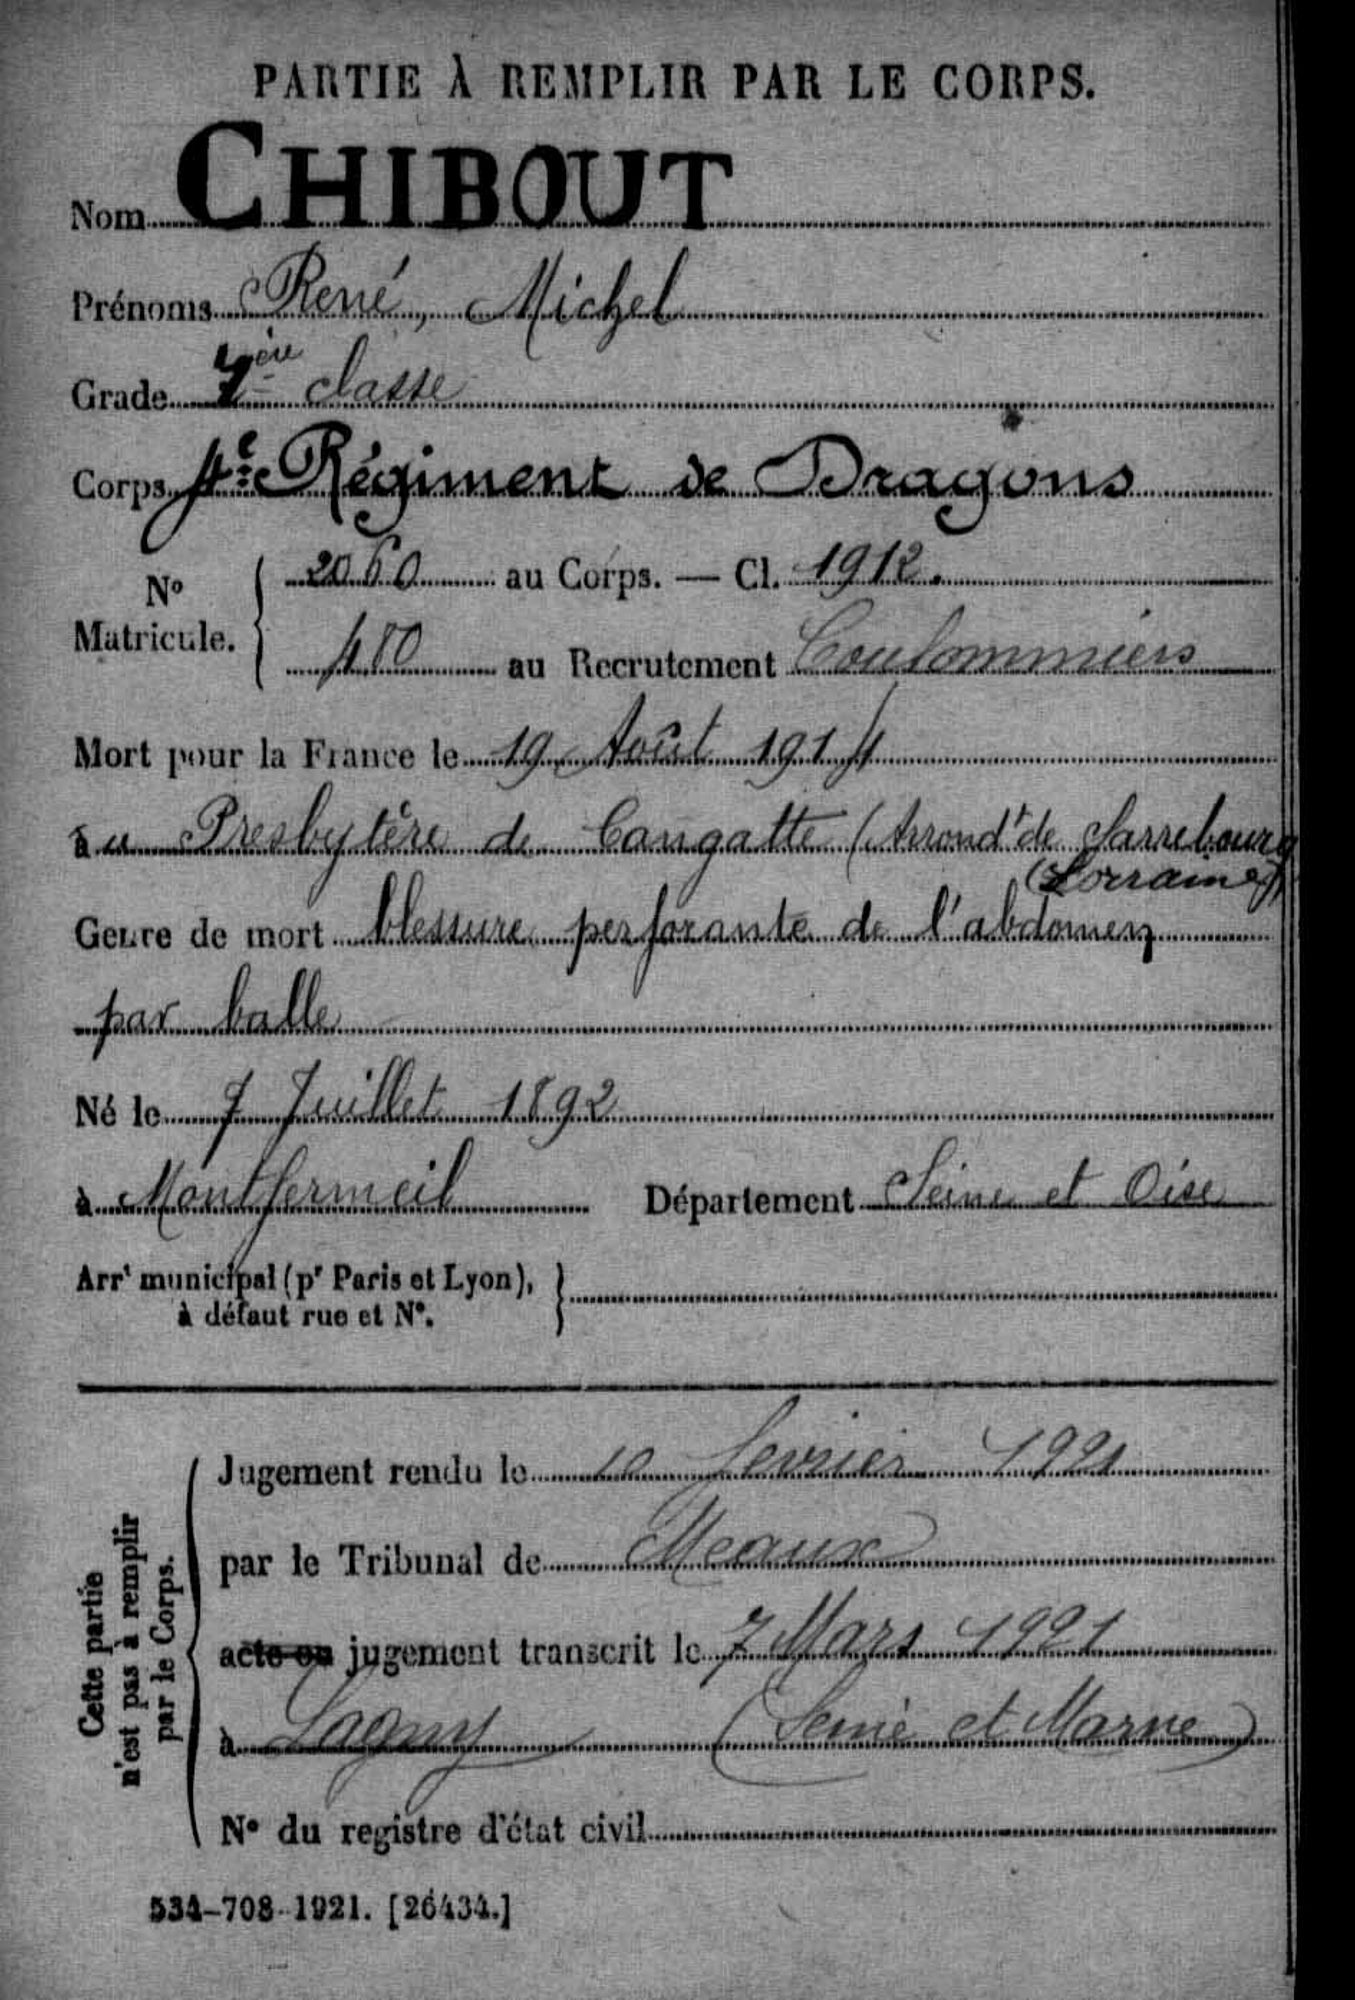 PARTIE À REMPLIR PAR LE CORPS.
Nom CHIBOUT
Prénoms René, Michel
Grade 1ère classe
Corps 4e Régiment de Dragons
No Matricule. 2060 au Corps. — Cl. 1912.
480 au Recrutement Coulommiers
Mort pour la France le 19 Août 1914
au Presbytère de Cangatte (Arrondt de Sarrebourg
(Lorraine)
Genre de mort blessure perforante de l'abdomen
par balle
Né le 7 Juillet 1892
à Montfermeil Département Seine et Oise
Arrt municipal (pr Paris et Lyon),
à défaut rue et No.
Cette partie
n'est pas à remplir
par le Corps.
Jugement rendu le 10 fevrier 1921
par le Tribunal de Meaux
acte ou jugement transcrit le 7 Mars 1921
à Lagny (Seine et Marne)
No du registre d'état civil
534-708-1921. [26434.]